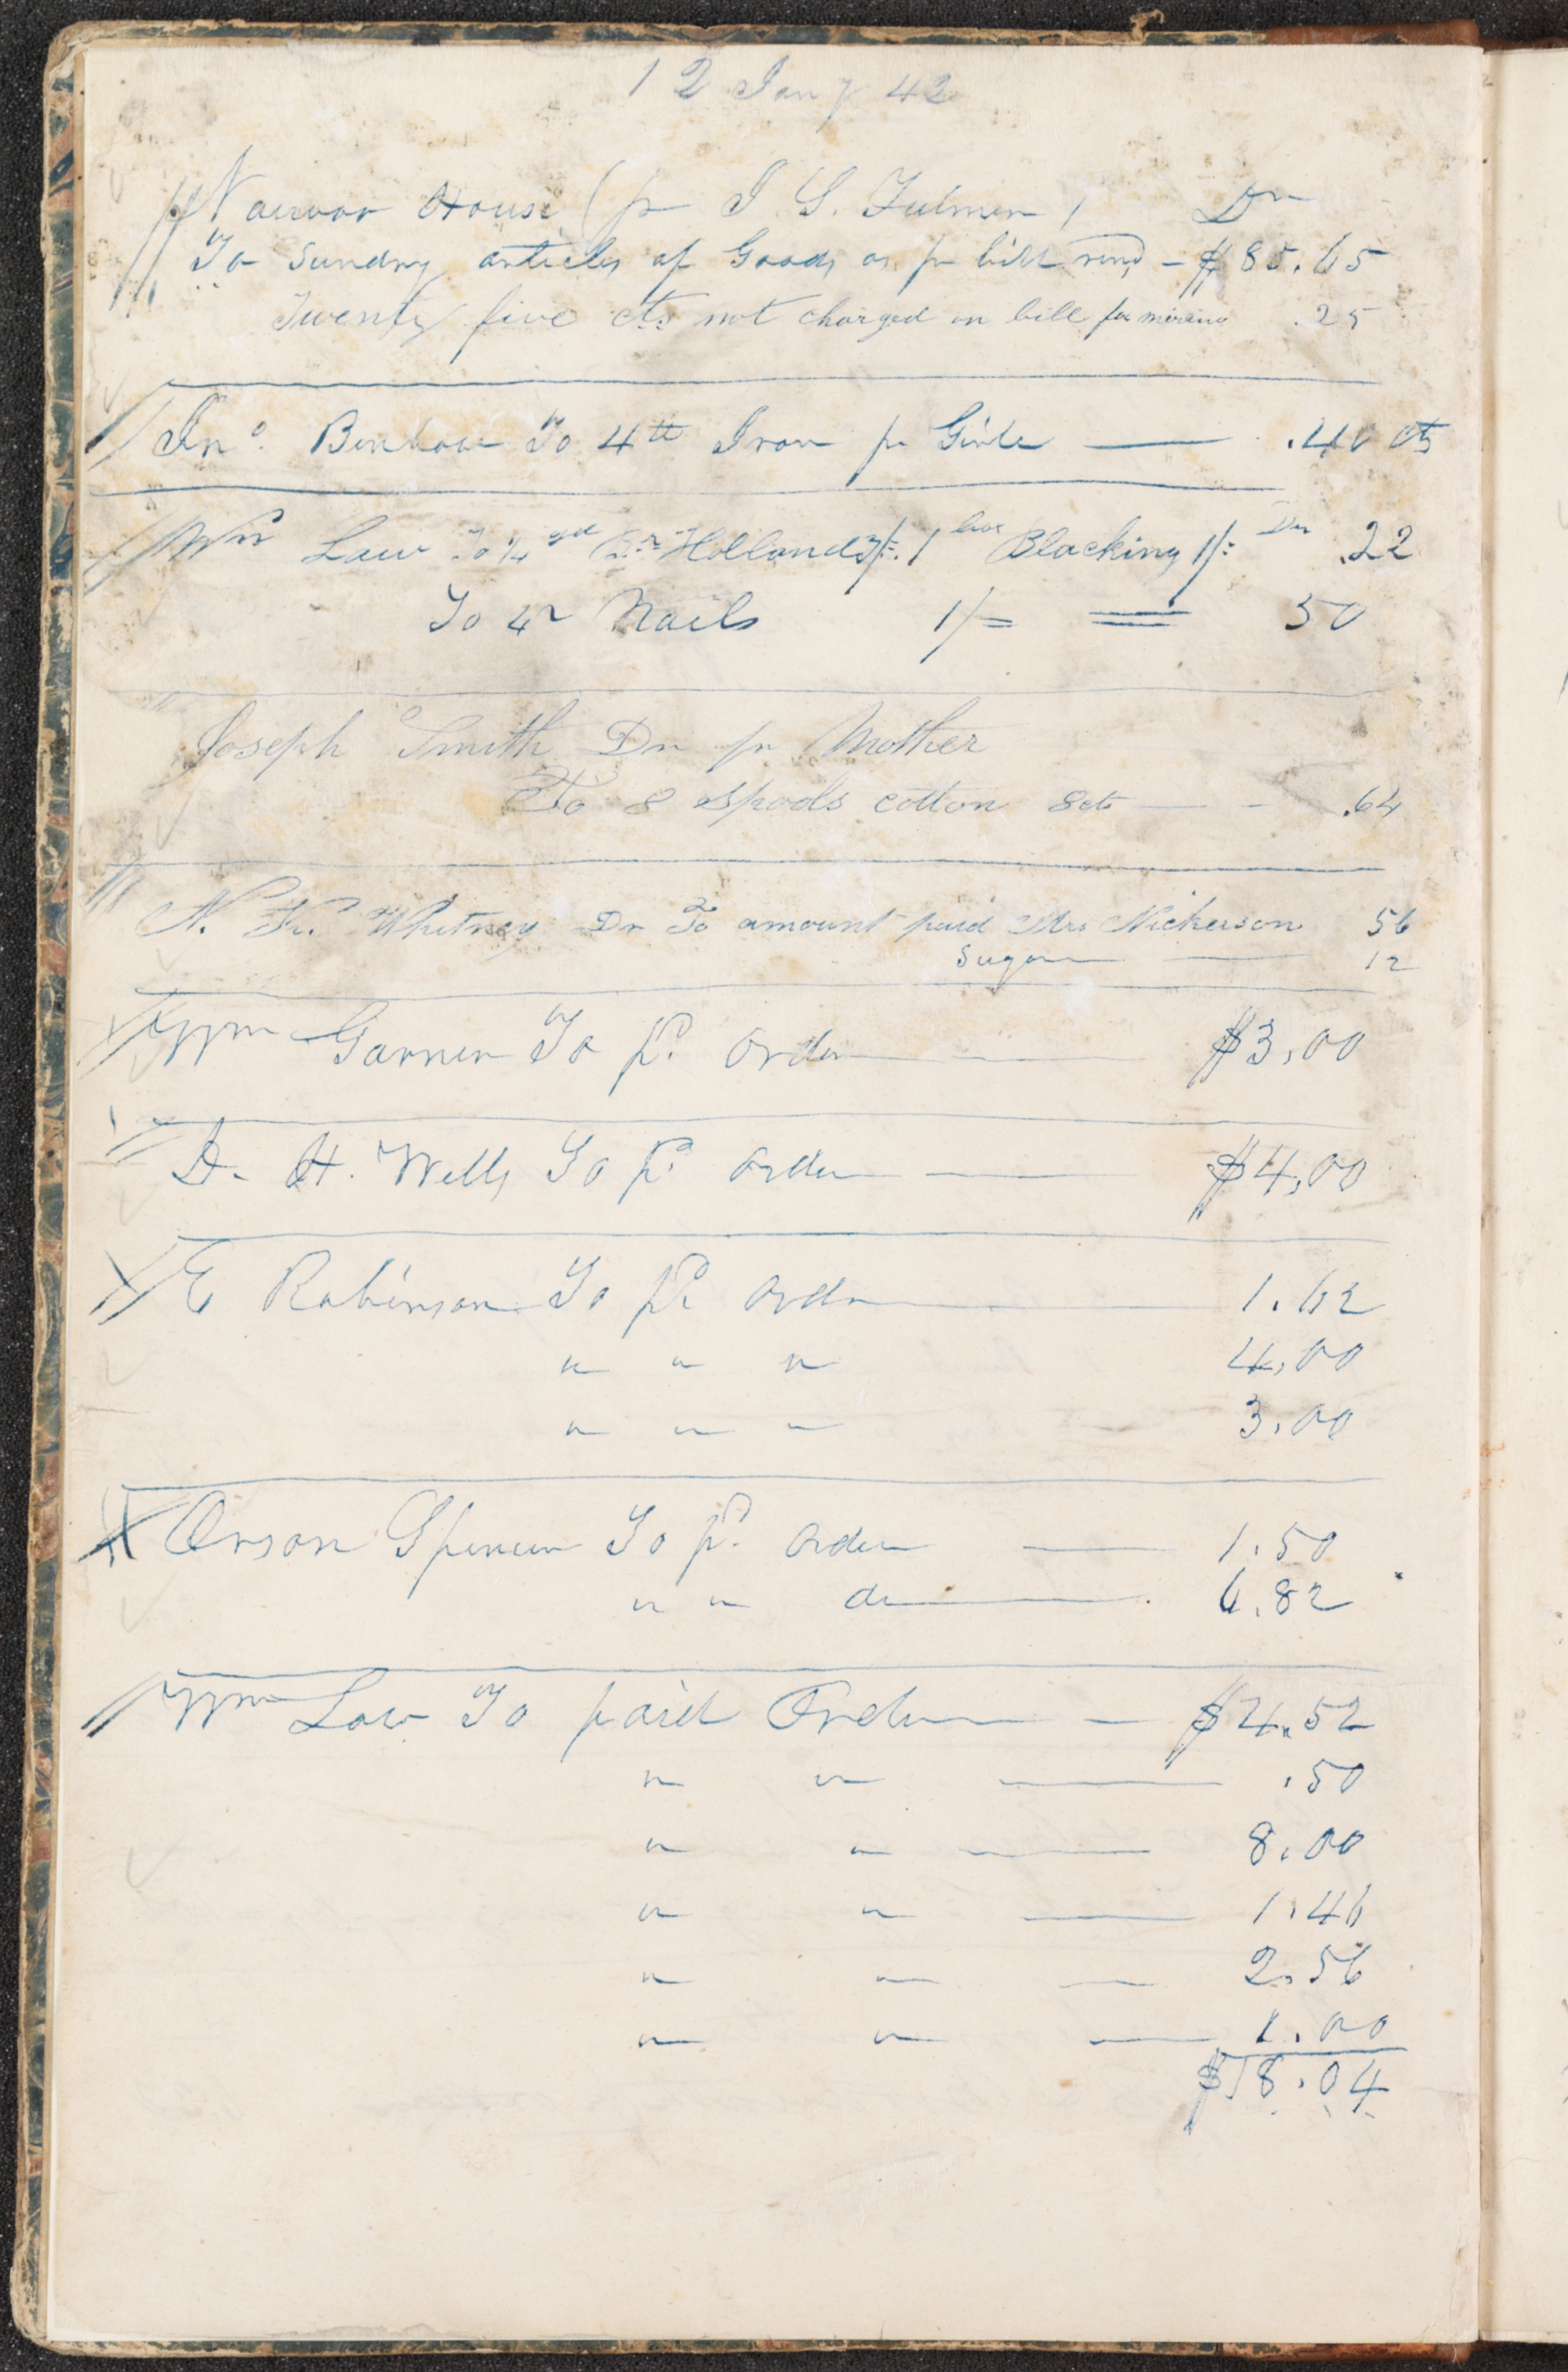 12 Jany 42
Nauvoo House (pr J. G. Fulmer) Dr
To Sundry articles of Goods as pr bill rend - $85.65
Twenty five cts not charged on bill for merino .25
Jno. Benbow To 4 lb Iron pr Girle — .40 cts
Wm Law To ¼ yd Hollands 1 box Blacking 1/= Dr .22
To 4 Nails 1/= = 50
Joseph Smith Dr pr Mother
To 8 Spools cotton 8 cts — - .64
N. K. Whitney Dr To amount paid Mrs Nickerson 56
Sugar — 12
Wm Garner To pd. order — $3,00
D. H. Wells To pd. order — $4,00
E Robinson To pd. order — 1.62
" " " 4,00
" " " 3.00
Orson Spencer To pd. order — 1.50
" " do — 6.82
Wm Law To paid Order — $4.52
" " — .50
" " — 8.00
" " — 1.46
" " — 2.56
" " — 1.00
$18.04